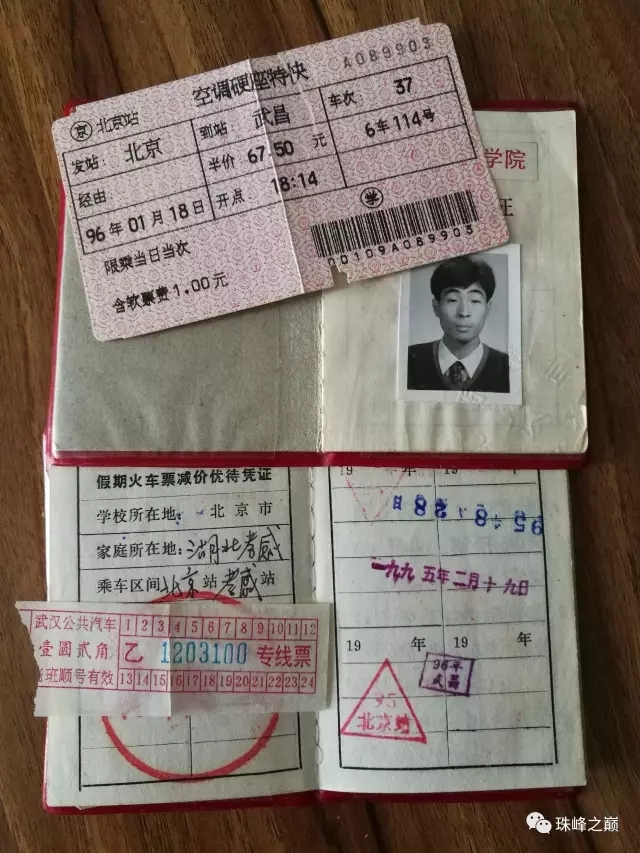 京 北京站 空调硬座特快 A089903
发站: 北京 到站 武昌 车次 37
经由 半价 67.50 元 6车114号
96年01月18日 开点 18:14
限乘当日当次 学
含软票费1.00元
00109A089903
学院
证
假期火车票减价优待凭证
学校所在地: 北京市
家庭所在地: 湖北孝感
乘车区间 北京站 孝感站
武汉公共汽车 1 2 3 4 5 6 7 8 9 10 11 12
壹圆贰角 乙 1203100 专线票
班顺号有效 13 14 15 16 17 18 19 20 21 22 23 24
19 年 19 年
95.8.28日
一九九五年二月十九日
19 年 19 年
95
北京站
96年
武昌
珠峰之巅